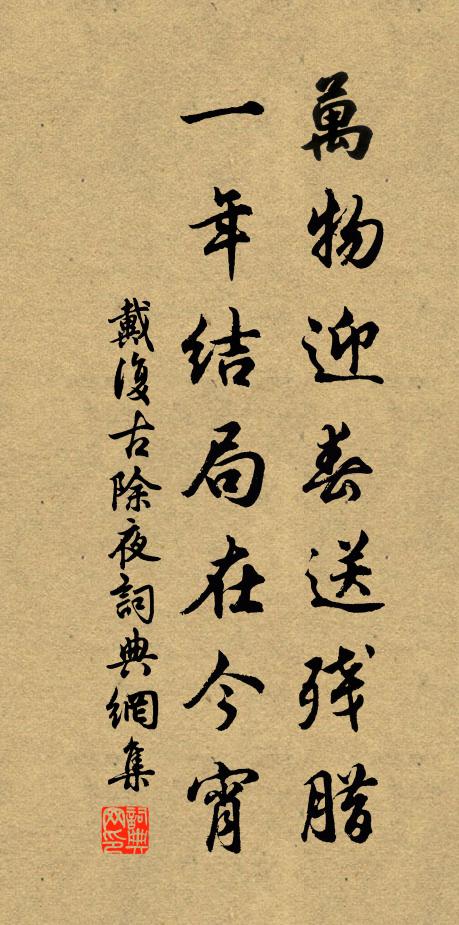 萬物迎春送残腊
一年结局在今宵
戴復古除夜詞典網集
詞典网印